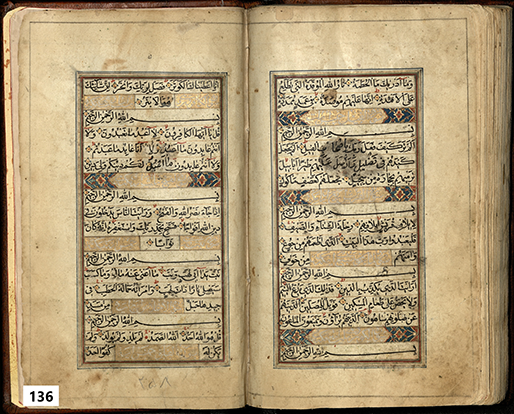 وما ادريك ما الحطمة نار الله الموقدة التي تطلع
على الافئدة انها عليهم مؤصدة في عمد ممددة
بسم الله الرحمن الرحيم
الم تر كيف فعل ربك باصحاب الفيل الم يجعل
كيدهم في تضليل وارسل عليهم طيرا ابابيل
ترميهم بحجارة من سجيل فجعلهم كعصف ماكول
بسم الله الرحمن الرحيم
لايلاف قريش ايلافهم رحلة الشتاء والصيف
فليعبدوا رب هذا البيت الذي اطعمهم من جوع
وامنهم من خوف
بسم الله الرحمن الرحيم
ارايت الذي يكذب بالدين فذلك الذي يدع اليتيم
ولا يحض على طعام المسكين فويل للمصلين الذين هم
عن صلوتهم ساهون الذين هم يراؤن ويمنعون الماعون
بسم الله الرحمن الرحيم
انا اعطيناك الكوثر فصل لربك وانحر ان شانئك
هو الابتر
بسم الله الرحمن الرحيم
قل يا ايها الكافرون لا اعبد ما تعبدون ولا
انتم عابدون ما اعبد ولا انا عابد ما عبدتم
ولا انتم عابدون ما اعبد لكم دينكم ولي دين
بسم الله الرحمن الرحيم
اذا جاء نصر الله والفتح ورايت الناس يدخلون في
دين الله افواجا فسبح بحمد ربك واستغفره انه كان
توابا
بسم الله الرحمن الرحيم
تبت يدا ابي لهب وتب ما اغنى عنه ماله وما كسب
سيصلى نارا ذات لهب وامراته حمالة الحطب في
جيدها حبل من مسد
بسم الله الرحمن الرحيم
قل هو الله احد الله الصمد لم يلد ولم يولد ولم
يكن له كفوا احد
136